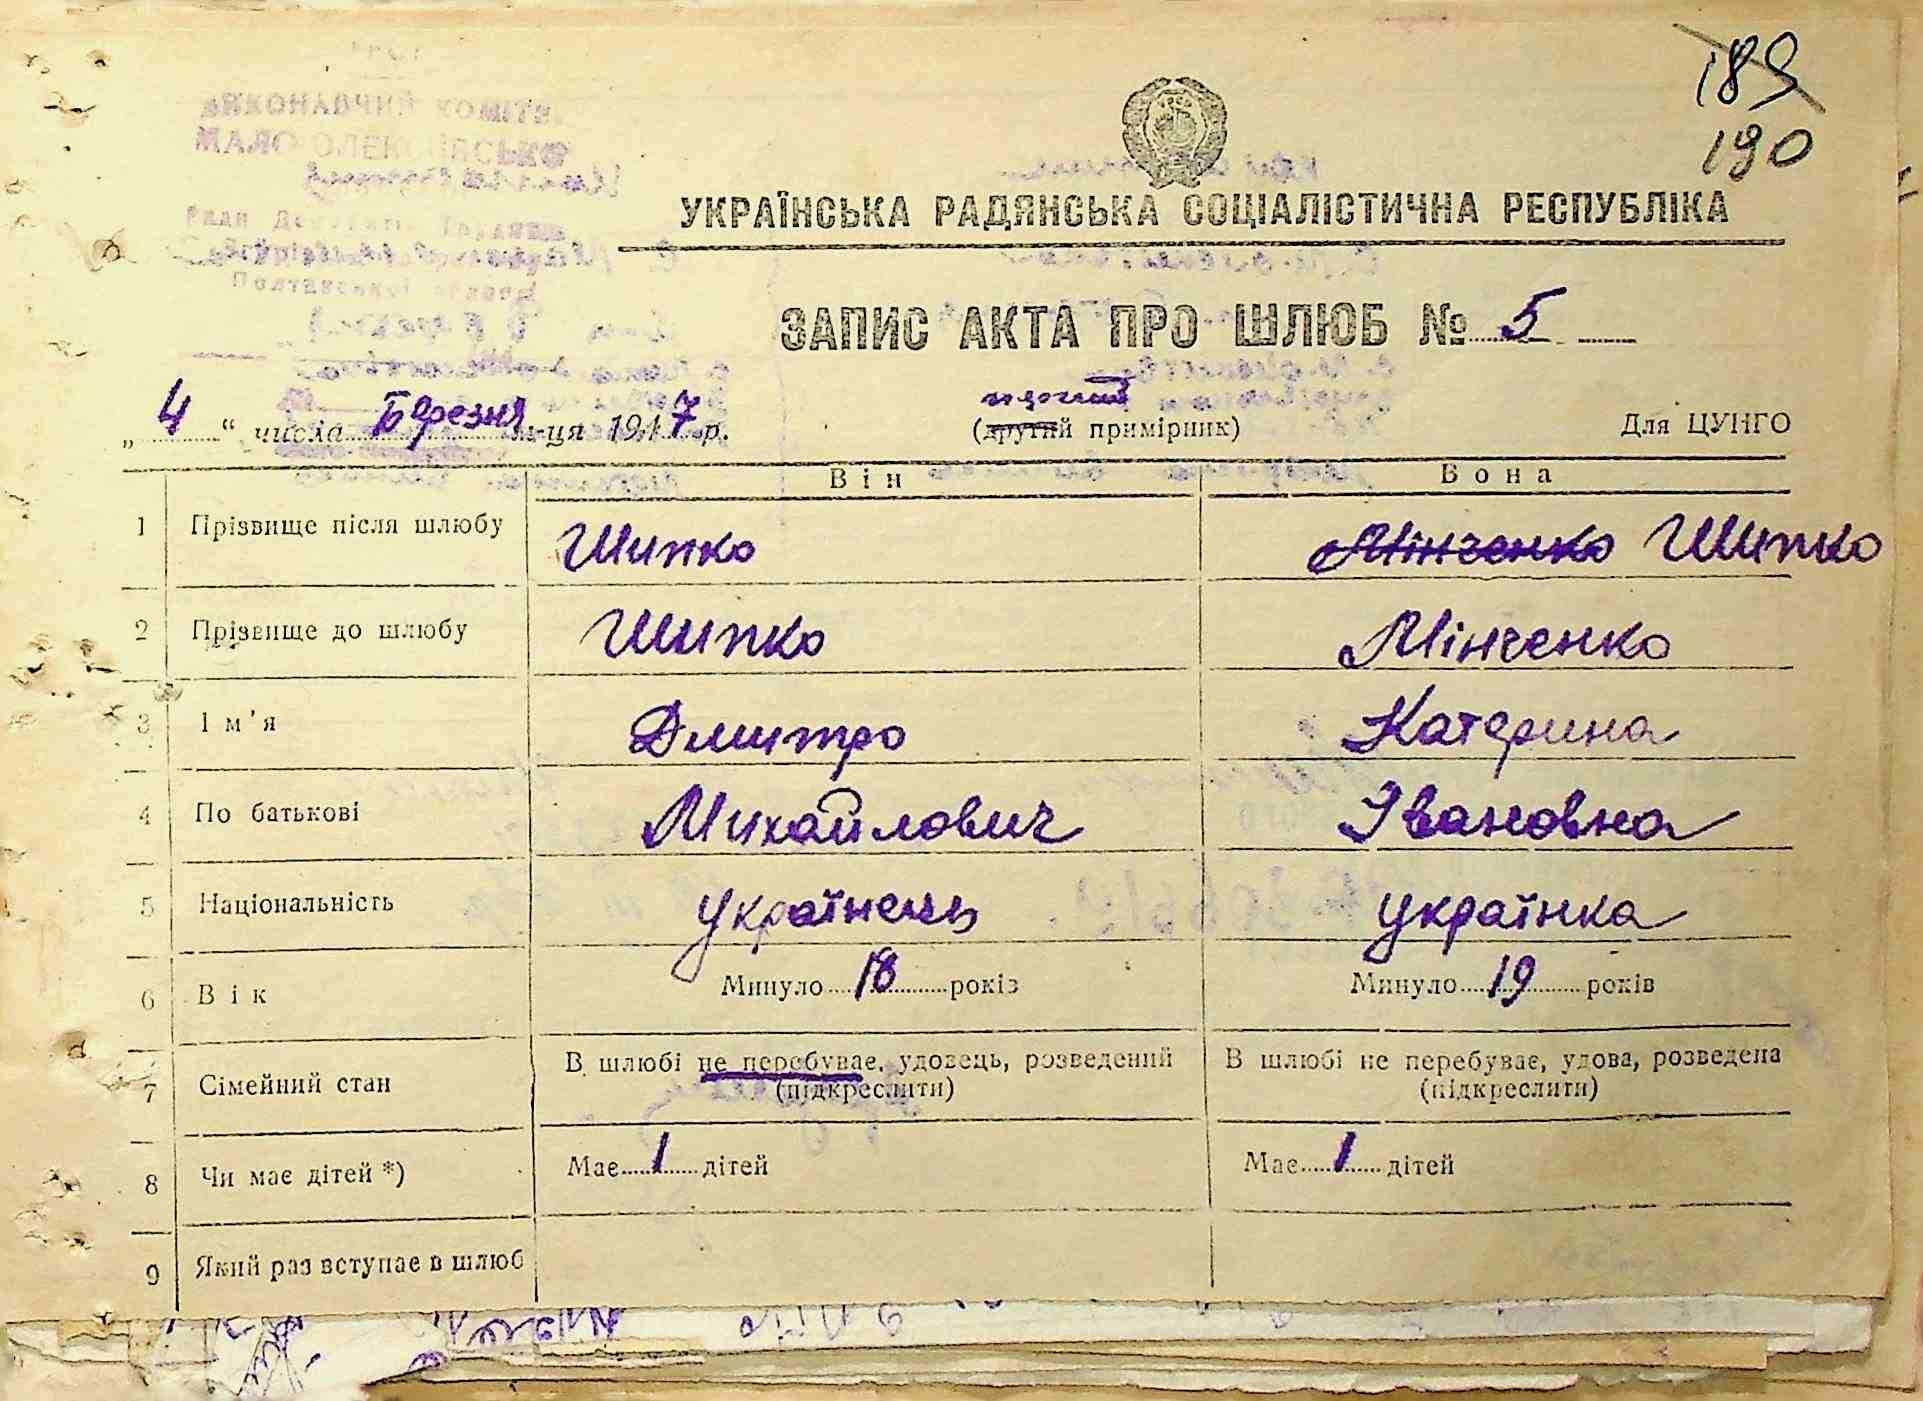 189
190
ВИКОНАВЧИЙ КОМІТЕ
МАЛО
Полтавської
УКРАЇНСЬКА РАДЯНСЬКА СОЦІАЛІСТИЧНА РЕСПУБЛІКА
ЗАПИС АКТА ПРО ШЛЮБ № 5
„ 4 “ числа Березня м-ця 1947 р.
(другий примірник) Для ЦУНГО
Він Вона
1 Прізвище після шлюбу Шипко Мінченко Шипко
2 Прізвище до шлюбу Шипко Мінченко
3 Ім'я Дмитро Катерина
4 По батькові Михайлович Івановна
5 Національність українець українка
6 Вік Минуло 18 років Минуло 19 років
7 Сімейний стан В шлюбі не перебуває, удовець, розведений В шлюбі не перебуває, удова, розведена
(підкреслити) (підкреслити)
8 Чи має дітей *) Має 1 дітей Має 1 дітей
9 Який раз вступає в шлюб